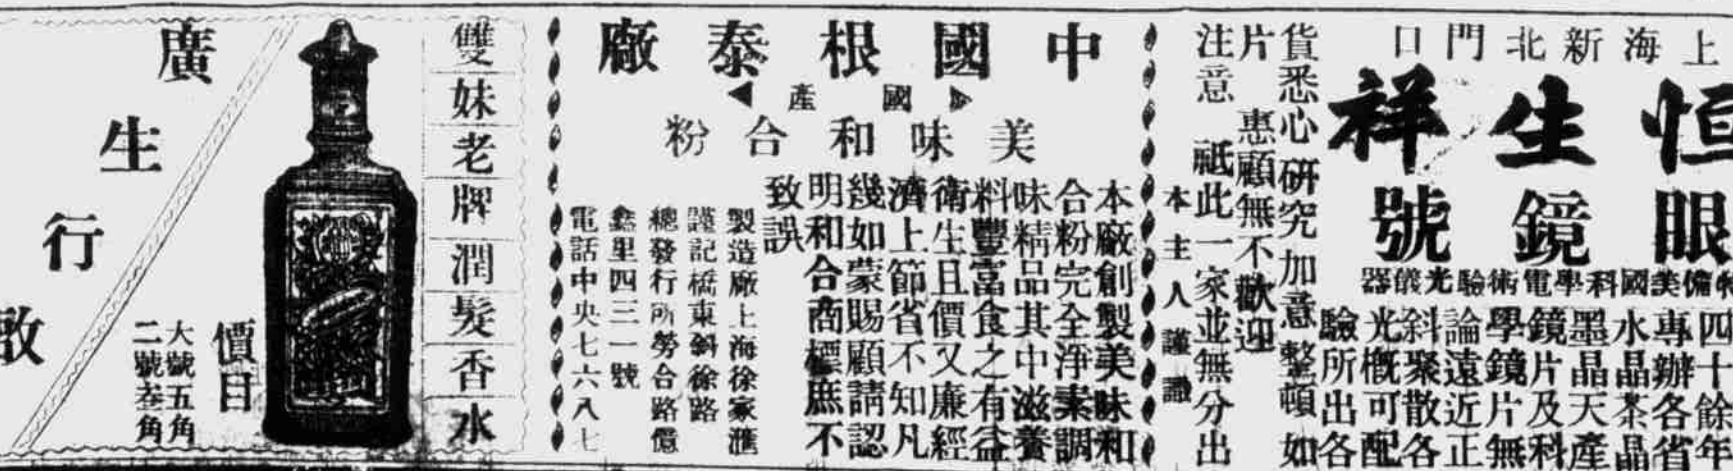 上海新北門口
恒生祥
眼鏡號
備美國科學電術驗光儀器
四十餘年
專辦各省
水晶茶晶
墨晶天產
鏡片及科
學鏡片無
論遠近正
斜聚散各
光概可配
驗所出各
貨悉心研究加意整頓如
片惠顧無不歡迎
注意 祇此一家並無分出
本主人謹識
中國根泰廠
國產
美味和合粉
本廠創製美味和
合粉完全淨素調
味精品其中滋養
料豐富食之有益
衛生且價又廉經
濟上節省不知凡
幾如蒙賜顧請認
明和合商標庶不
致誤
製造廠上海徐家滙
謹記橋東斜徐路
總發行所勞合路億
鑫里四三一號
電話中央七六八七
雙妹老牌潤髮香水
價目
大號五角
二號叁角
廣生行啟